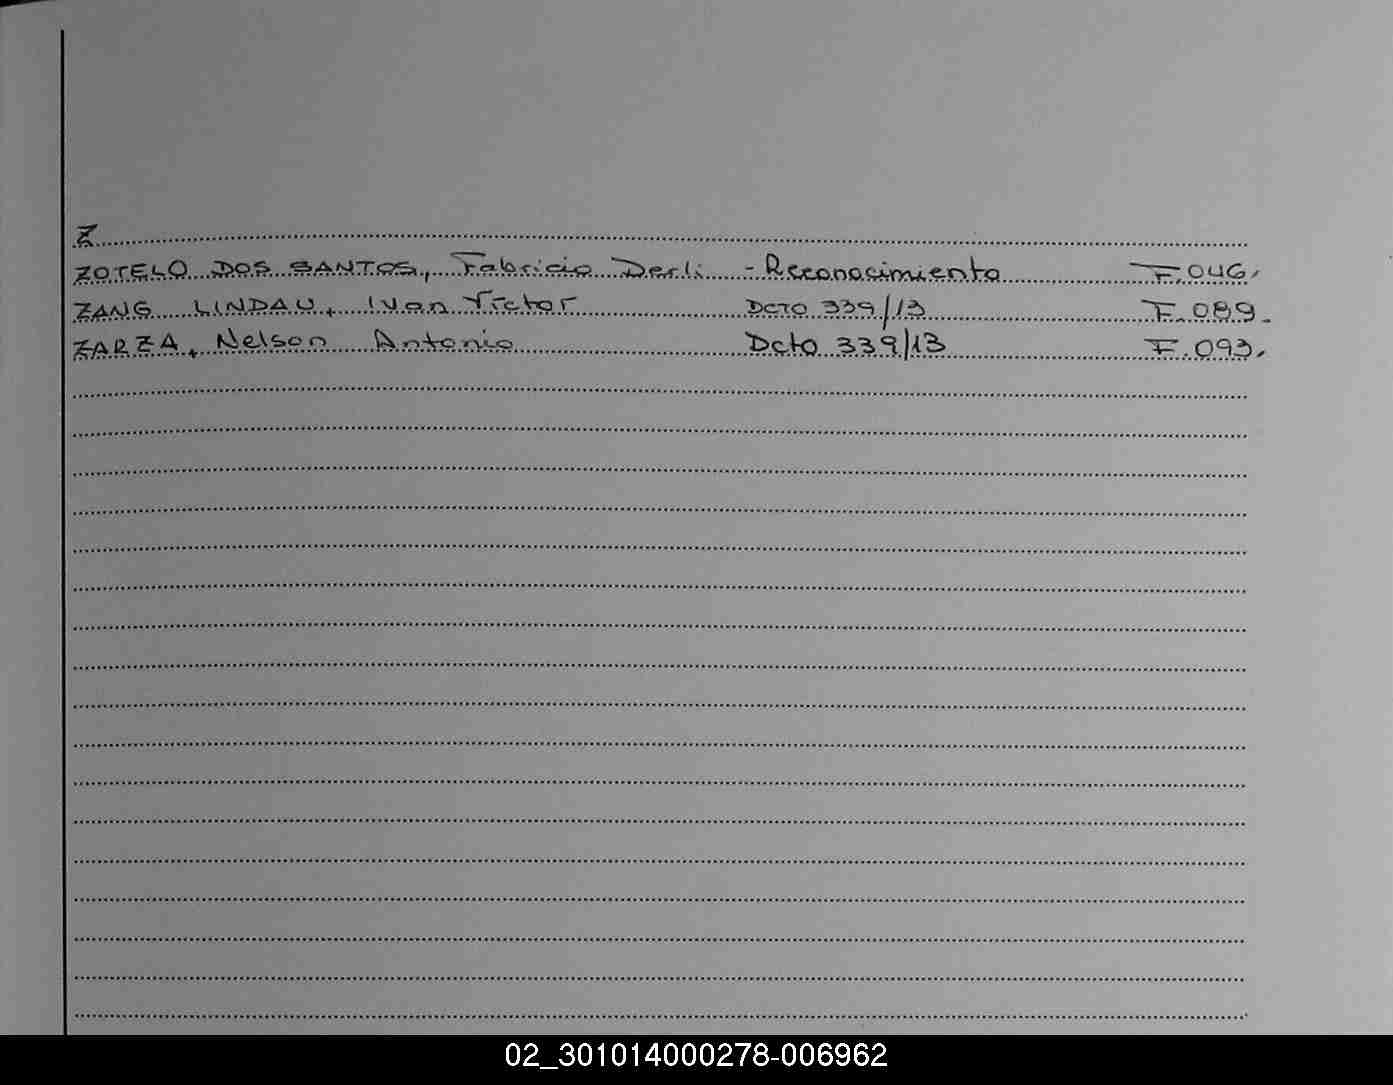 Z
ZOTELO DOS SANTOS, Fabricio Derli - Reconocimiento F.046.
ZANG LINDAU, Ivan Victor DCTO 339/13 F.089.
ZARZA, Nelson Antonio Dcto 339/13 F.093.
02_301014000278-006962